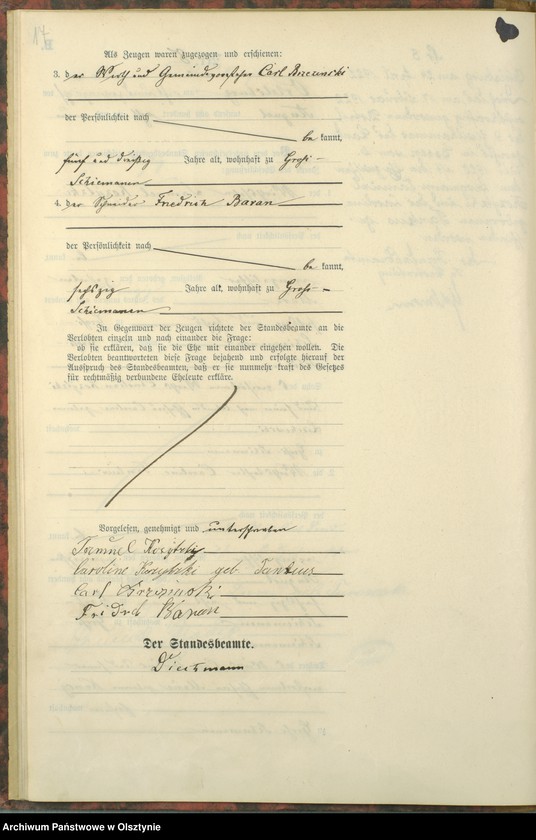 17
Als Zeugen waren zugezogen und erschienen:
3. der Wirth und Gemeindevorsteher Carl Brzezinski
der Persönlichkeit nach
be kannt,
fünf und dreißig Jahre alt, wohnhaft zu Groß-
Schiemanen
4. der Schneider Friedrich Baran
der Persönlichkeit nach
be kannt,
sechszig Jahre alt, wohnhaft zu Groß-
Schiemanen
In Gegenwart der Zeugen richtete der Standesbeamte an die
Verlobten einzeln und nach einander die Frage:
ob sie erklären, daß sie die Ehe mit einander eingehen wollen. Die
Verlobten beantworteten diese Frage bejahend und erfolgte hierauf der
Ausspruch des Standesbeamten, daß er sie nunmehr kraft des Gesetzes
für rechtmäßig verbundene Eheleute erkläre.
Vorgelesen, genehmigt und unterschrieben
Samuel
Caroline geb.
Carl Brzezinski
Fridrch Baran
Der Standesbeamte.
Archiwum Państwowe w Olsztynie